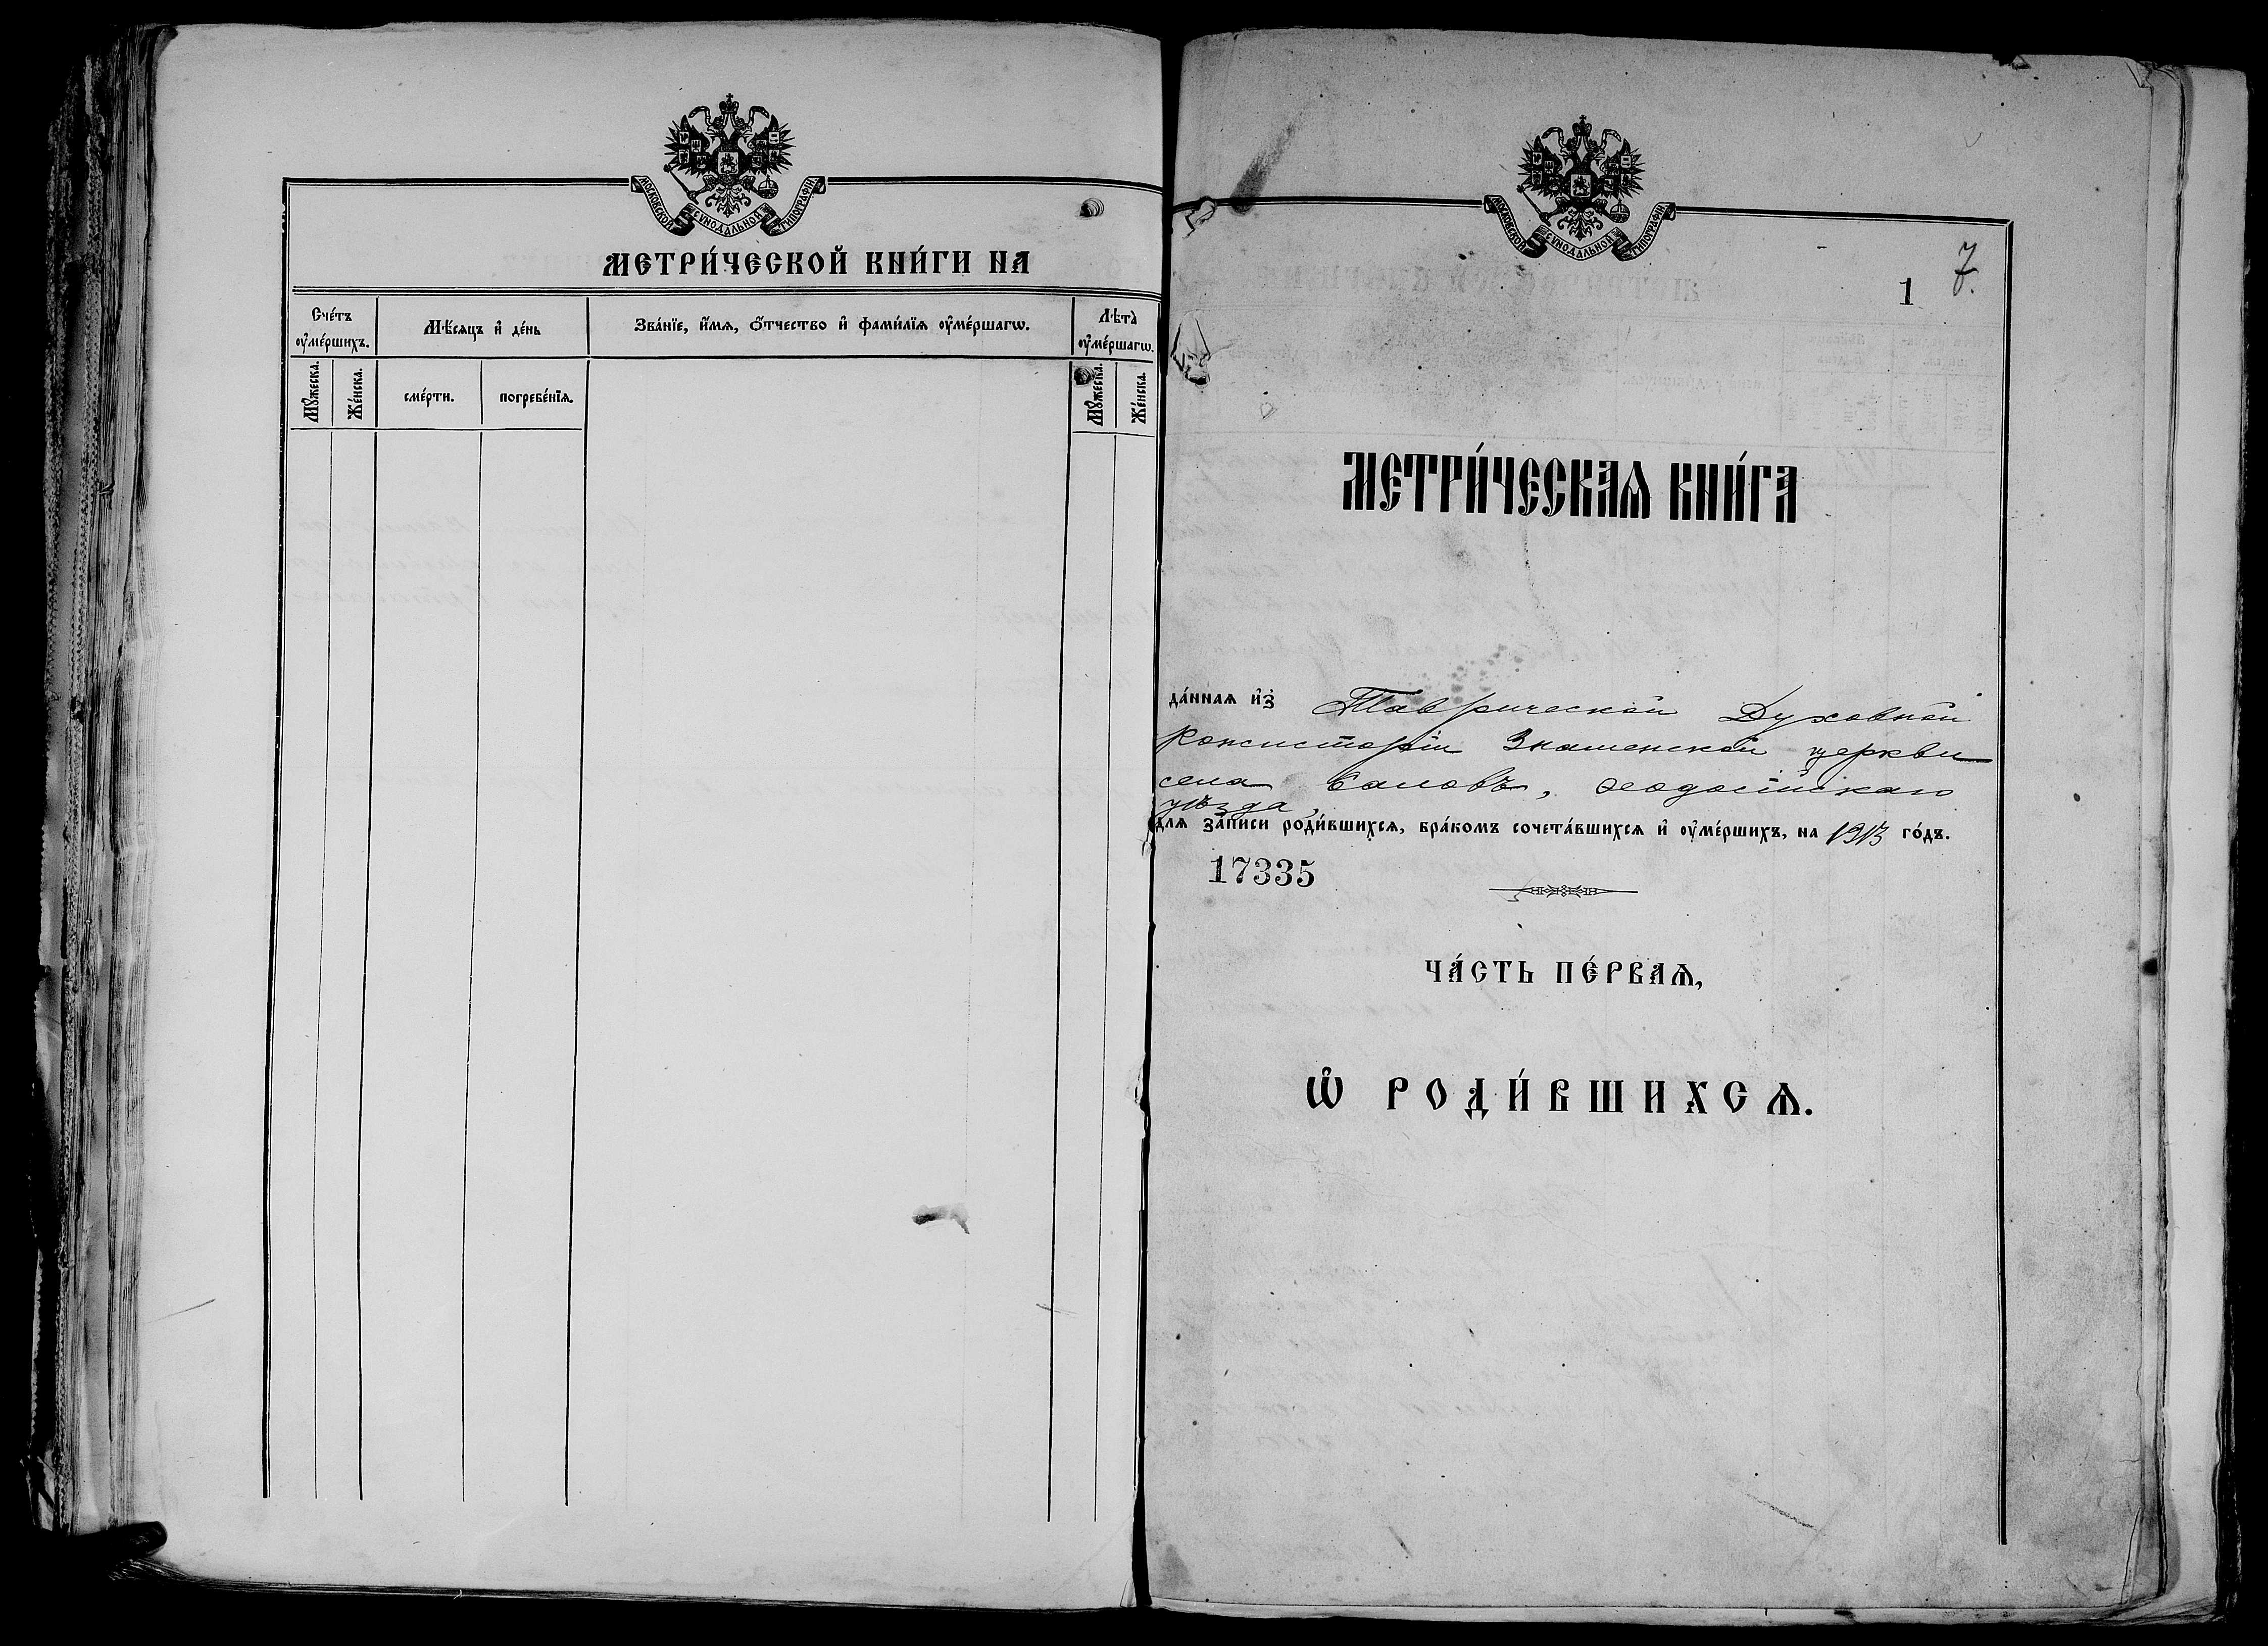 МОСКОВСКОЙ СѴНОДАЛЬНОЙ ТИПОГРАФІИ
МЕТРИ́ЧЕСКОЙ КНИ́ГИ НА
Сче́тъ ᲂу҆ме́ршихъ.
Мѣ́сяцъ и҆ де́нь
Зва́нїе, и҆́мѧ, ѻ҆́тчество и҆ фами́лїѧ ᲂу҆ме́ршагѡ.
Лѣта̀ ᲂу҆ме́ршагѡ.
Мꙋ́жеска.
Же́нска.
сме́рти.
погребе́нїѧ.
Мꙋ́жеска.
Же́нска.
МОСКОВСКОЙ СѴНОДАЛЬНОЙ ТИПОГРАФІИ
1
7.
МЕТРИ́ЧЕСКАѦ КНИ́ГА
да́ннаѧ и҆з̾ Таврической Духовной
Консисторіи Знаменской церкви
села Саловъ, Ѳеодосійскаго
уѣзда,
для за́писи роди́вшихсѧ, бра́комъ сочета́вшихсѧ и҆ ᲂу҆ме́ршихъ, на 1913 го́дъ.
17335
ЧА́СТЬ ПЕ́РВАѦ,
Ѡ҆ РОДИ́ВШИХСѦ.